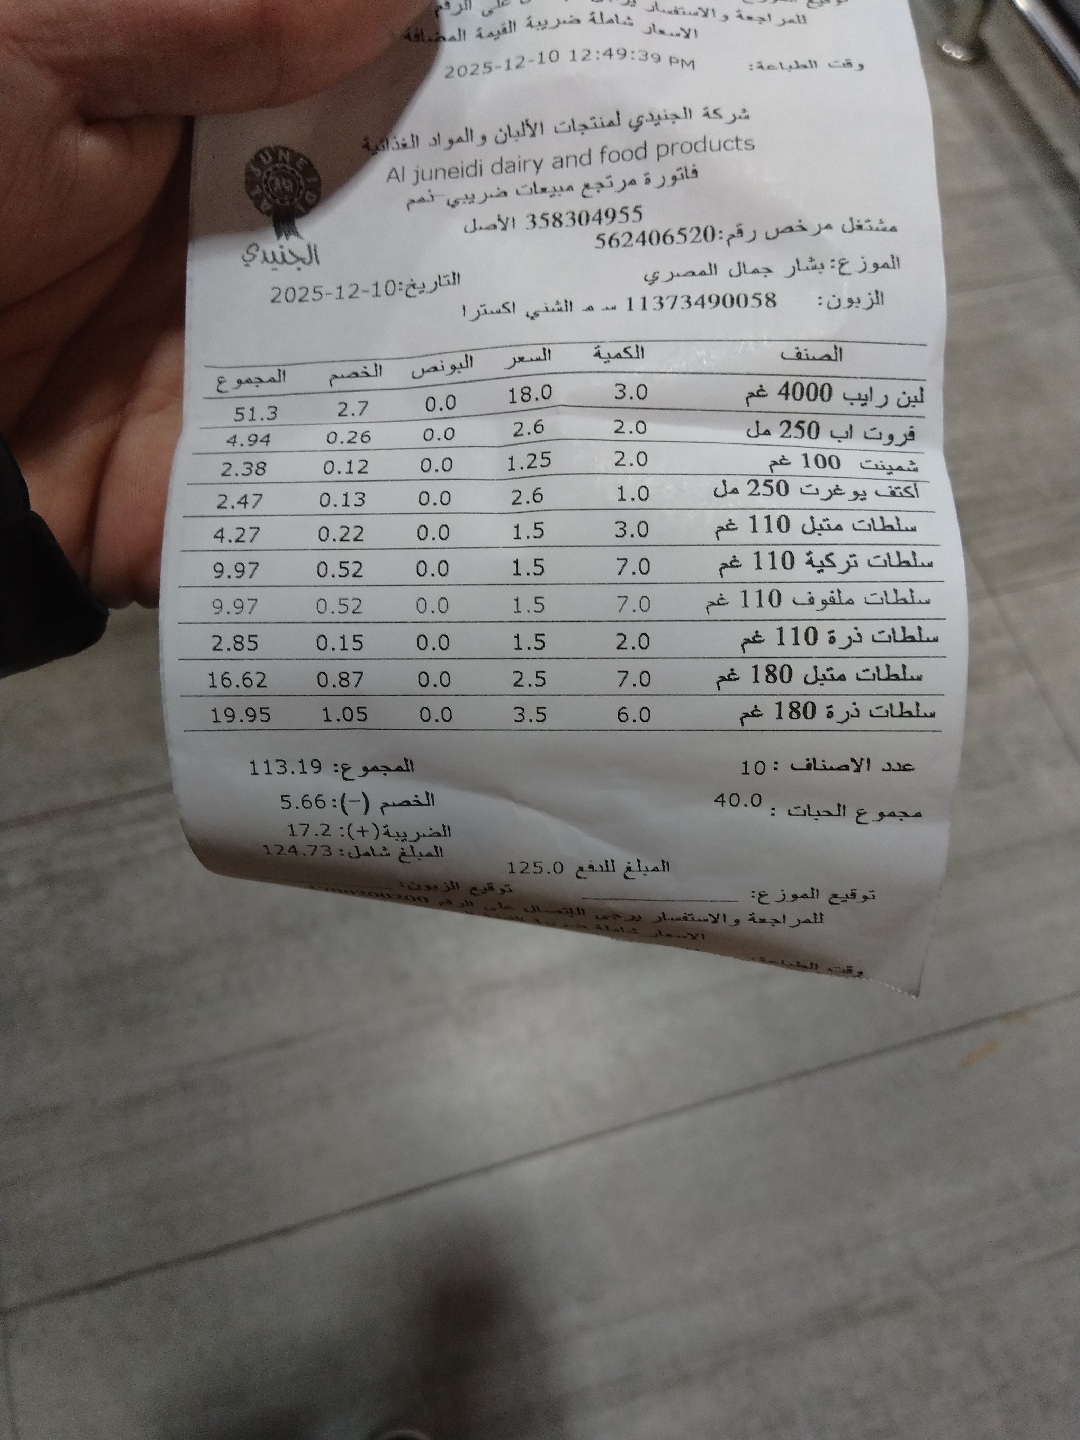 على الرقم
للمراجعة والاستفسار يرجى
الاسعار شاملة ضريبة القيمة المضافة
وقت الطباعة: 2025-12-10 12:49:39 PM
شركة الجنيدي لمنتجات الألبان والمواد الغذائية
Al juneidi dairy and food products
فاتورة مرتجع مبيعات ضريبي ذمم
358304955 الأصل
مشتغل مرخص رقم:562406520
الجنيدي
الموزع: بشار جمال المصري
التاريخ:2025-12-10
الزبون: 11373490058 س م الشني اكسترا
الصنف الكمية السعر البونص الخصم المجموع
لبن رايب 4000 غم 3.0 18.0 0.0 2.7 51.3
فروت اب 250 مل 2.0 2.6 0.0 0.26 4.94
شمينت 100 غم 2.0 1.25 0.0 0.12 2.38
اكتف يوغرت 250 مل 1.0 2.6 0.0 0.13 2.47
سلطات متبل 110 غم 3.0 1.5 0.0 0.22 4.27
سلطات تركية 110 غم 7.0 1.5 0.0 0.52 9.97
سلطات ملفوف 110 غم 7.0 1.5 0.0 0.52 9.97
سلطات ذرة 110 غم 2.0 1.5 0.0 0.15 2.85
سلطات متبل 180 غم 7.0 2.5 0.0 0.87 16.62
سلطات ذرة 180 غم 6.0 3.5 0.0 1.05 19.95
عدد الاصناف : 10 المجموع: 113.19
مجموع الحبات : 40.0 الخصم (-):5.66
الضريبة(+): 17.2
المبلغ شامل: 124.73
المبلغ للدفع 125.0
توقيع الموزع: توقيع الزبون:
للمراجعة والاستفسار يرجى الاتصال على الرقم
الاسعار شاملة ضريبة
وقت الطباعة: